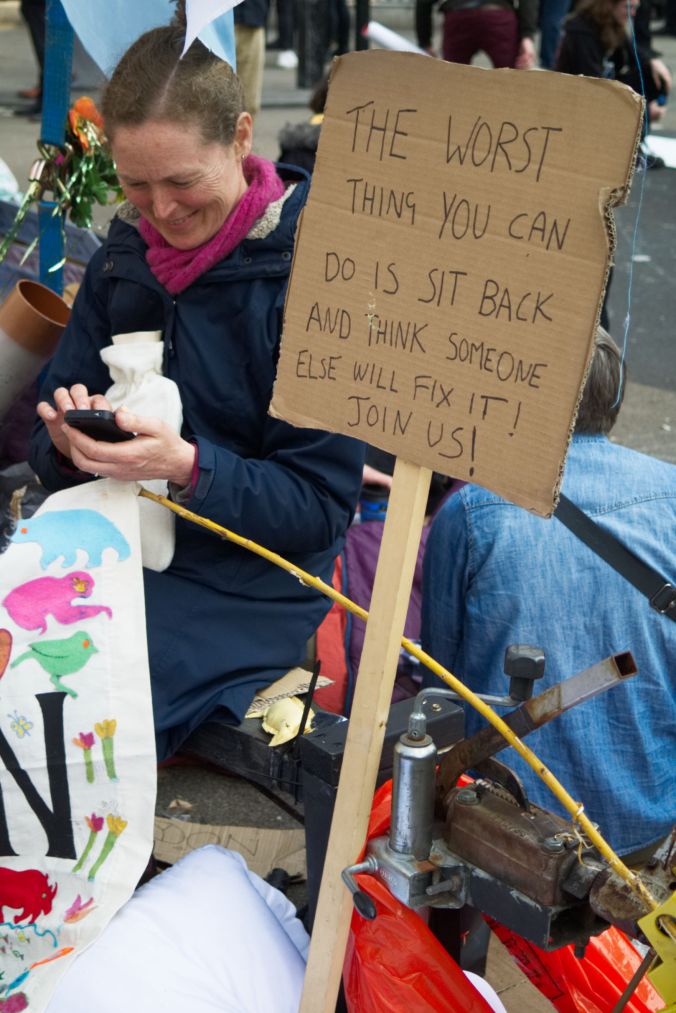 THE WORST
THING YOU CAN
DO IS SIT BACK
AND THINK SOMEONE
ELSE WILL FIX IT!
JOIN US!
N